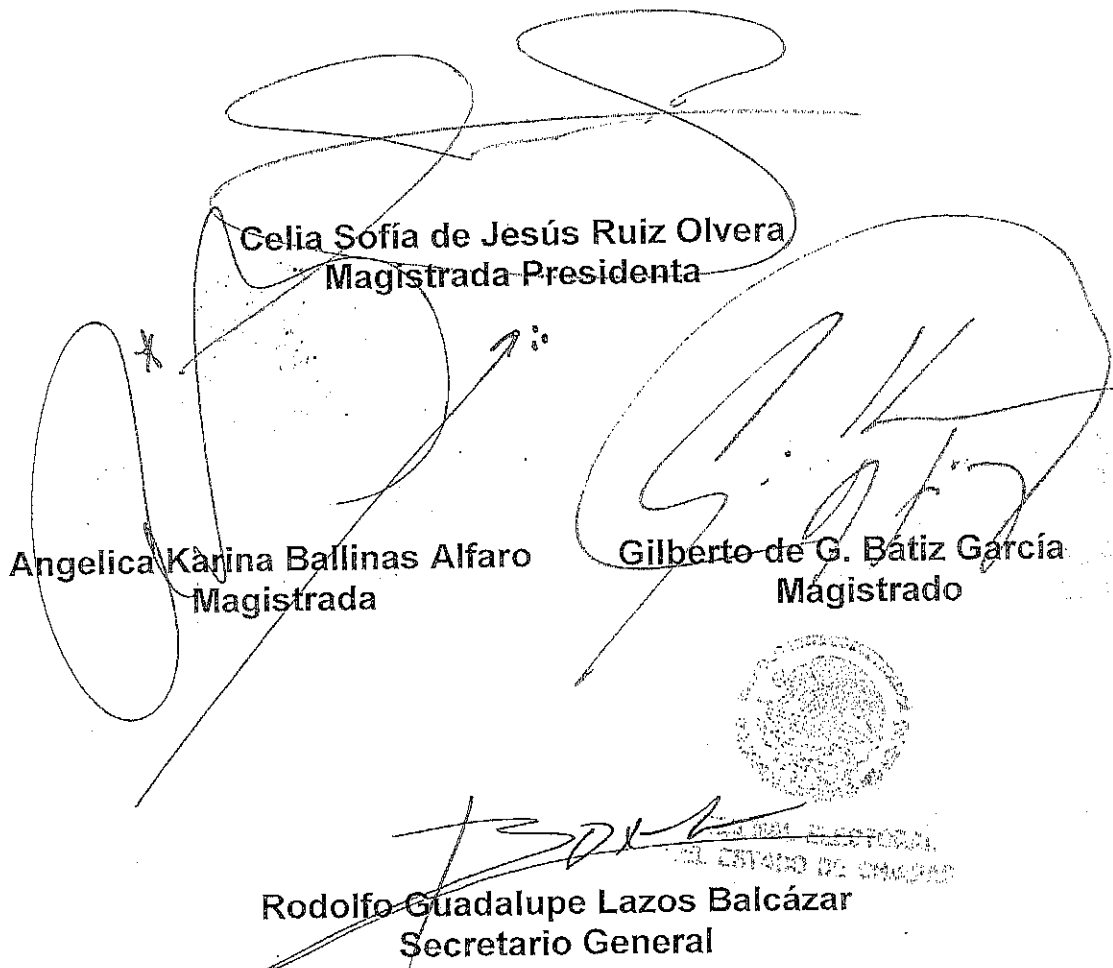 Celia Sofía de Jesús Ruiz Olvera
Magistrada Presidenta
Angelica Karina Ballinas Alfaro
Magistrada
Gilberto de G. Bátiz García
Magistrado
ELECTORAL
ESTADO DE CHIAPAS
Rodolfo Guadalupe Lazos Balcázar
Secretario General